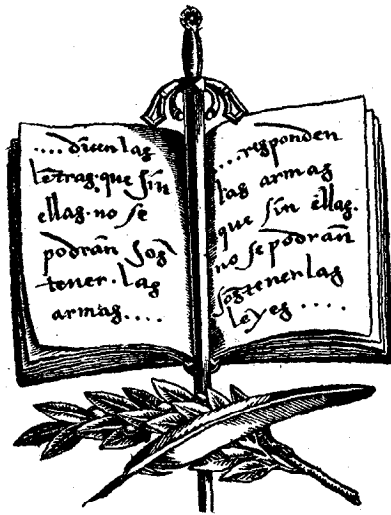 ....dicen las
letras que sin
ellas no se
podrán sos
tener las
armas....
....responden
las armas
que sin ellas
no se podrán
sostener las
leyes....